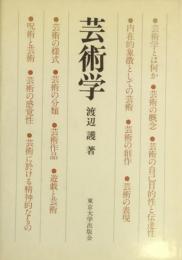 芸術学
渡辺 護 著
東京大学出版会
●芸術学とは何か ●芸術の概念 ●芸術の自己目的性と伝達性
●内在的象徴としての芸術 ●芸術の創作 ●芸術の表現
●芸術の様式 ●芸術の分類 ●芸術作品 ●遊戯と芸術
●呪術と芸術 ●芸術の感覚性 ●芸術に於ける精神的なもの